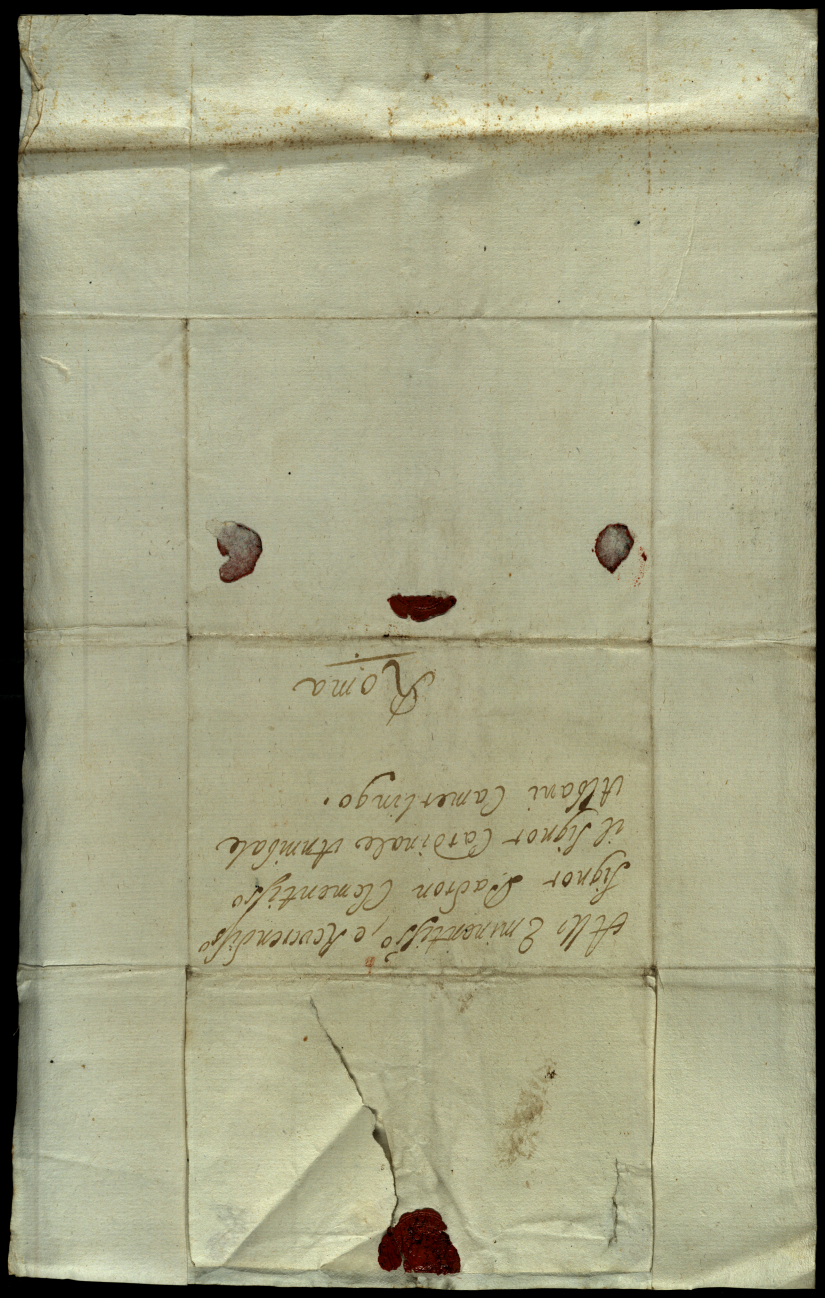 Allo Eminentisso, e Reverendisso
Signor Padron Clementisso
il Signor Cardinale Annibale
Albani Camerlingo.
Roma